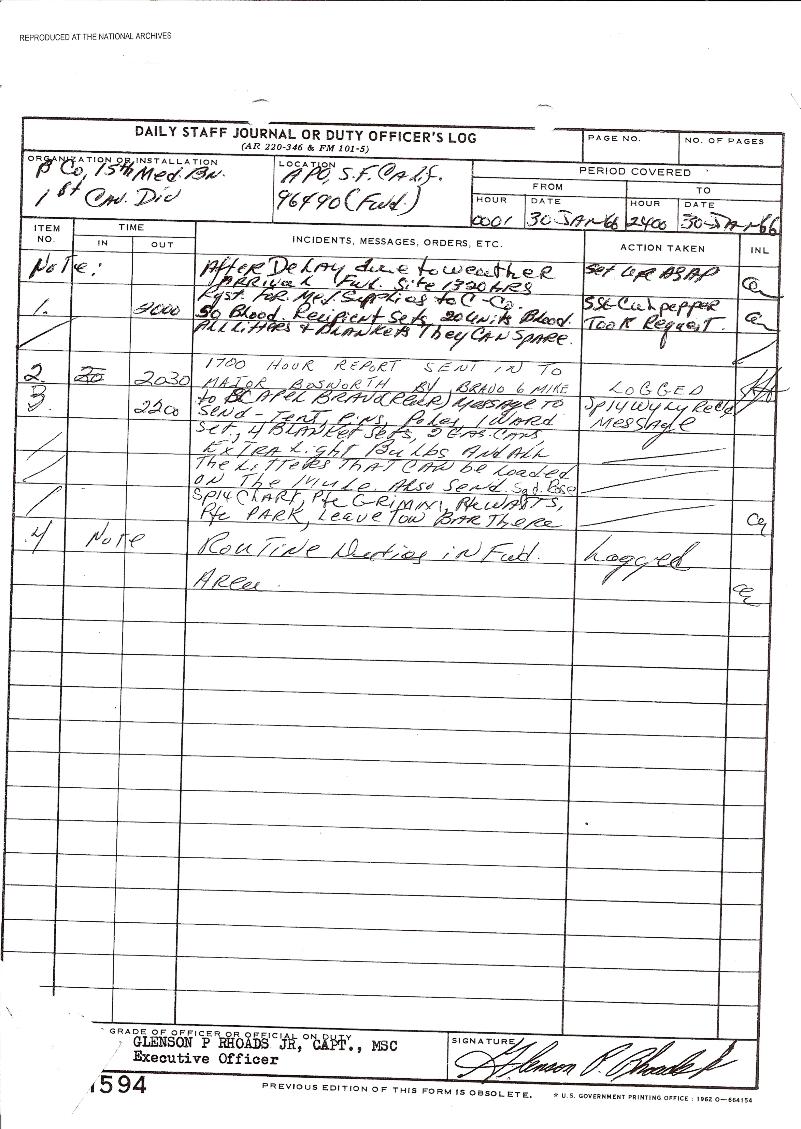 REPRODUCED AT THE NATIONAL ARCHIVES
DAILY STAFF JOURNAL OR DUTY OFFICER'S LOG
(AR 220-346 & FM 101-5)
PAGE NO.
NO. OF PAGES
ORGANIZATION OR INSTALLATION
B Co, 15th Med. Bn.
1st CAV. Div
LOCATION
APO, S.F. CALIF.
96490 (Fwd.)
PERIOD COVERED
FROM
TO
HOUR
DATE
HOUR
DATE
0001
30 JAN 66
2400
30 JAN 66
ITEM NO.
TIME
IN
OUT
INCIDENTS, MESSAGES, ORDERS, ETC.
ACTION TAKEN
INL
Note:
After Delay due to weather
ARRIVAL Fwd. Site 1320 HRS
Set up ASAP
1.
2000
Rqst. For Med Supplies to C-Co.
50 Blood Recipient Sets 20 Units Blood.
All Litters & Blankets They CAN SPARE.
SSt Culpepper
Took Request.
2
2030
1700 HOUR REPORT SENT IN TO
MAJOR BOSWORTH BY BRAVO 6 MIKE
LOGGED
3.
2200
to (Rear) Message to
Send - Tent, Pins, Poles, 1 WARD
Set, 4 Blanket Sets, 2 GAS CANS
EXTRA Light Bulbs AND ALL
The Litters THAT CAN be Loaded
ON The Mule. Also Send
Sp/4 CHART, Pfc GRIMM, Pfc WATTS,
Pfc PARK, Leave Tow BAR There
Sp/4 Wyly Rec'd
Message
4
Note
Routine Duties in Fwd.
Area.
Logged
GRADE OF OFFICER OR OFFICIAL ON DUTY
GLENSON P RHOADS JR, CAPT., MSC
Executive Officer
SIGNATURE
Glenson P. Rhoads Jr
1594
PREVIOUS EDITION OF THIS FORM IS OBSOLETE.
* U.S. GOVERNMENT PRINTING OFFICE : 1962 O—664154